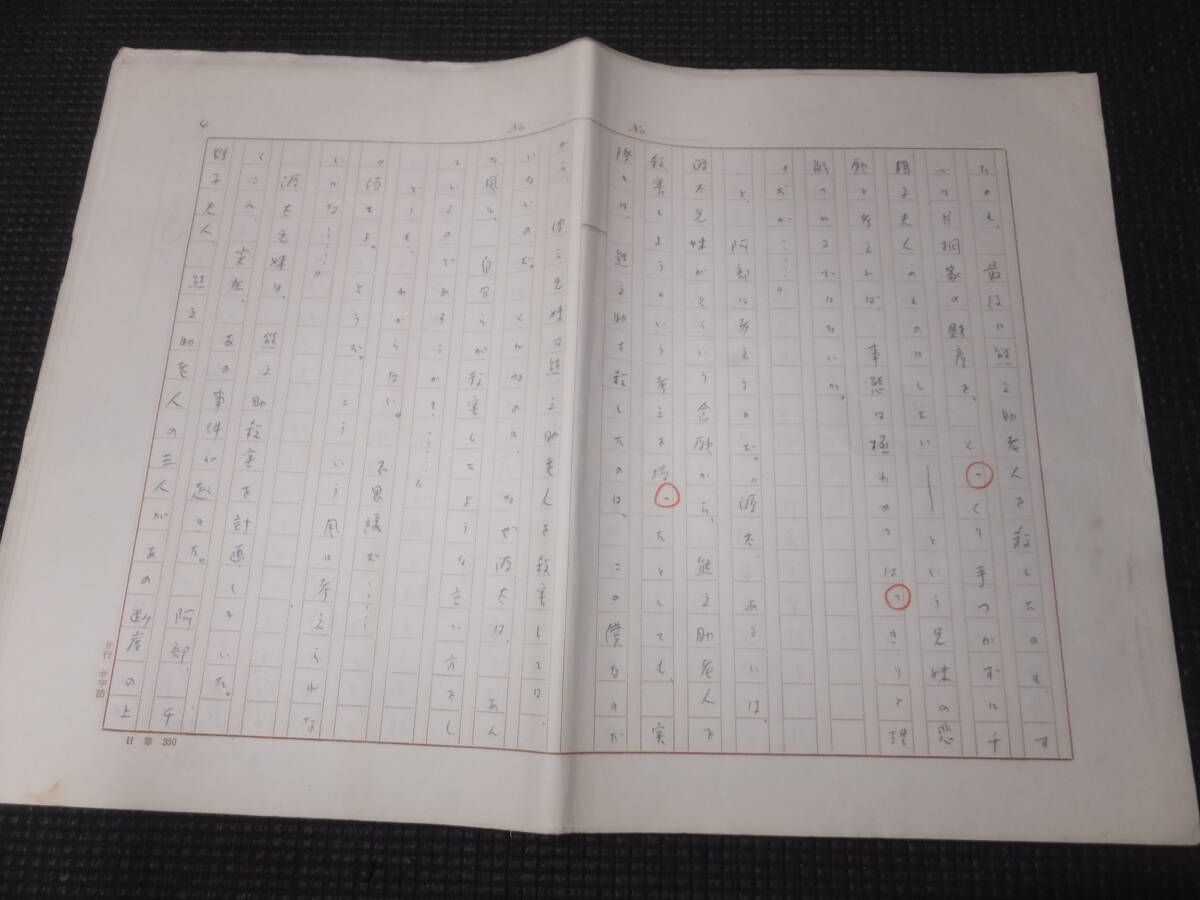 たのも、最后に熊之助老人を殺したのも、す
べて片桐家の財産を、そっくり手つかずに千
鶴子夫人のものにしたい――という兄妹の悲
願と考えれば、事態は極わめてはっきりと理
解されるではないか。
“だが……”
と、阿部は考えるのだ。“源太、あるいは、
源太兄妹がそういう念願から、熊之助老人を
殺害しようという考えを持ったとしても、実
際に、熊之助を殺したのは、この僕なのだ
から、彼ら兄妹は熊之助老人を殺害しては、
いないのだ。それなのに、なぜ源太は、あん
な風に、自分らが殺害したような言い方をし
ているのであろうか？……”
どうも、わからない。不思議だ……
“待てよ。そうだ。こういう風に考えられな
いかな……”
源太兄妹は、熊之助殺害を計画していた。
そこへ、突然、あの事件が起きた。阿部、千
鶴子夫人、熊之助老人の三人があの断崖の上
4
No.
No.
廿行廿字詰
日章 350